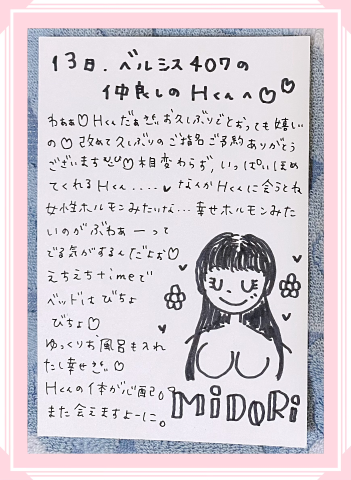 13日.ベルシス407の
仲良しのHくんへ♡♡
わぁぁ♡Hくんだぁぁ!!お久しぶりでとおっても嬉しい
の♡改めて久しぶりのご指名ご予約ありがとう
ございます♡相変わらず,いっぱいほめ
てくれるHくん....♥なんかHくんに会うとね
女性ホルモンみたいな...幸せホルモンみた
いのがぶわぁーって
でる気がするんだよぉ♡
えちえちtimeで
ベッドはびちょ
びちょ♡
ゆっくりお風呂も入れ
たし幸せ!!♡
Hくんの体が心配。
また会えますよーに。
MiDORi